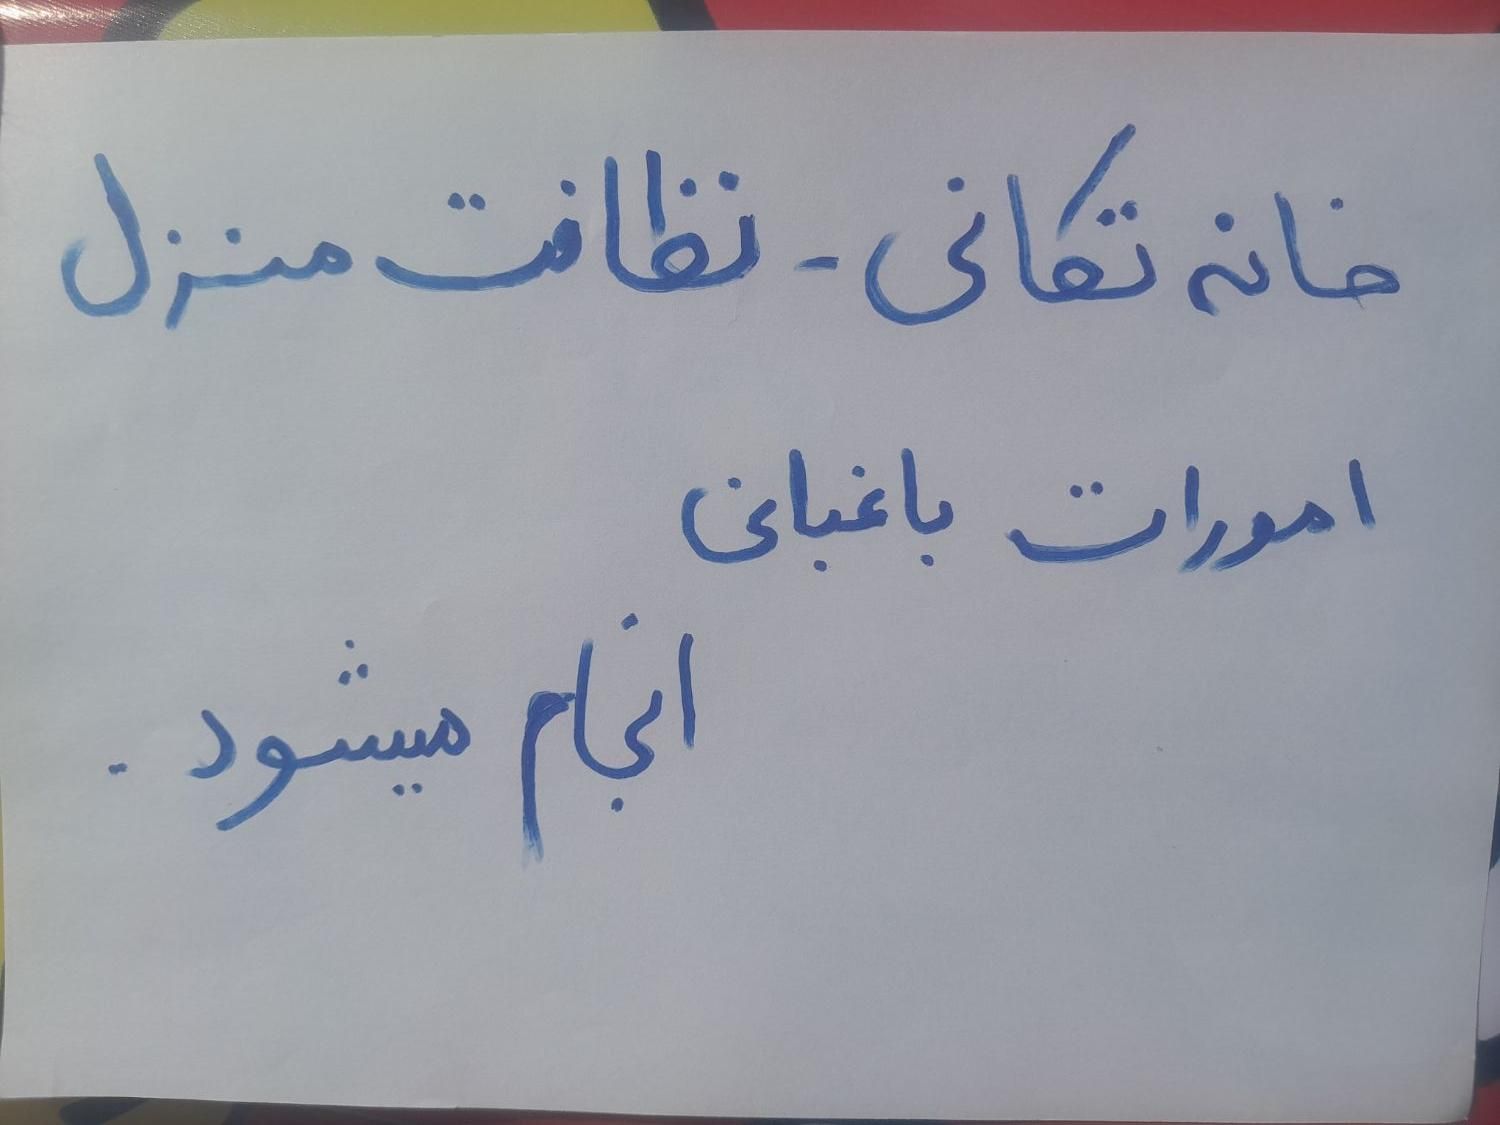 خانه تکانی - نظافت منزل
امورات باغبانی
انجام میشود .